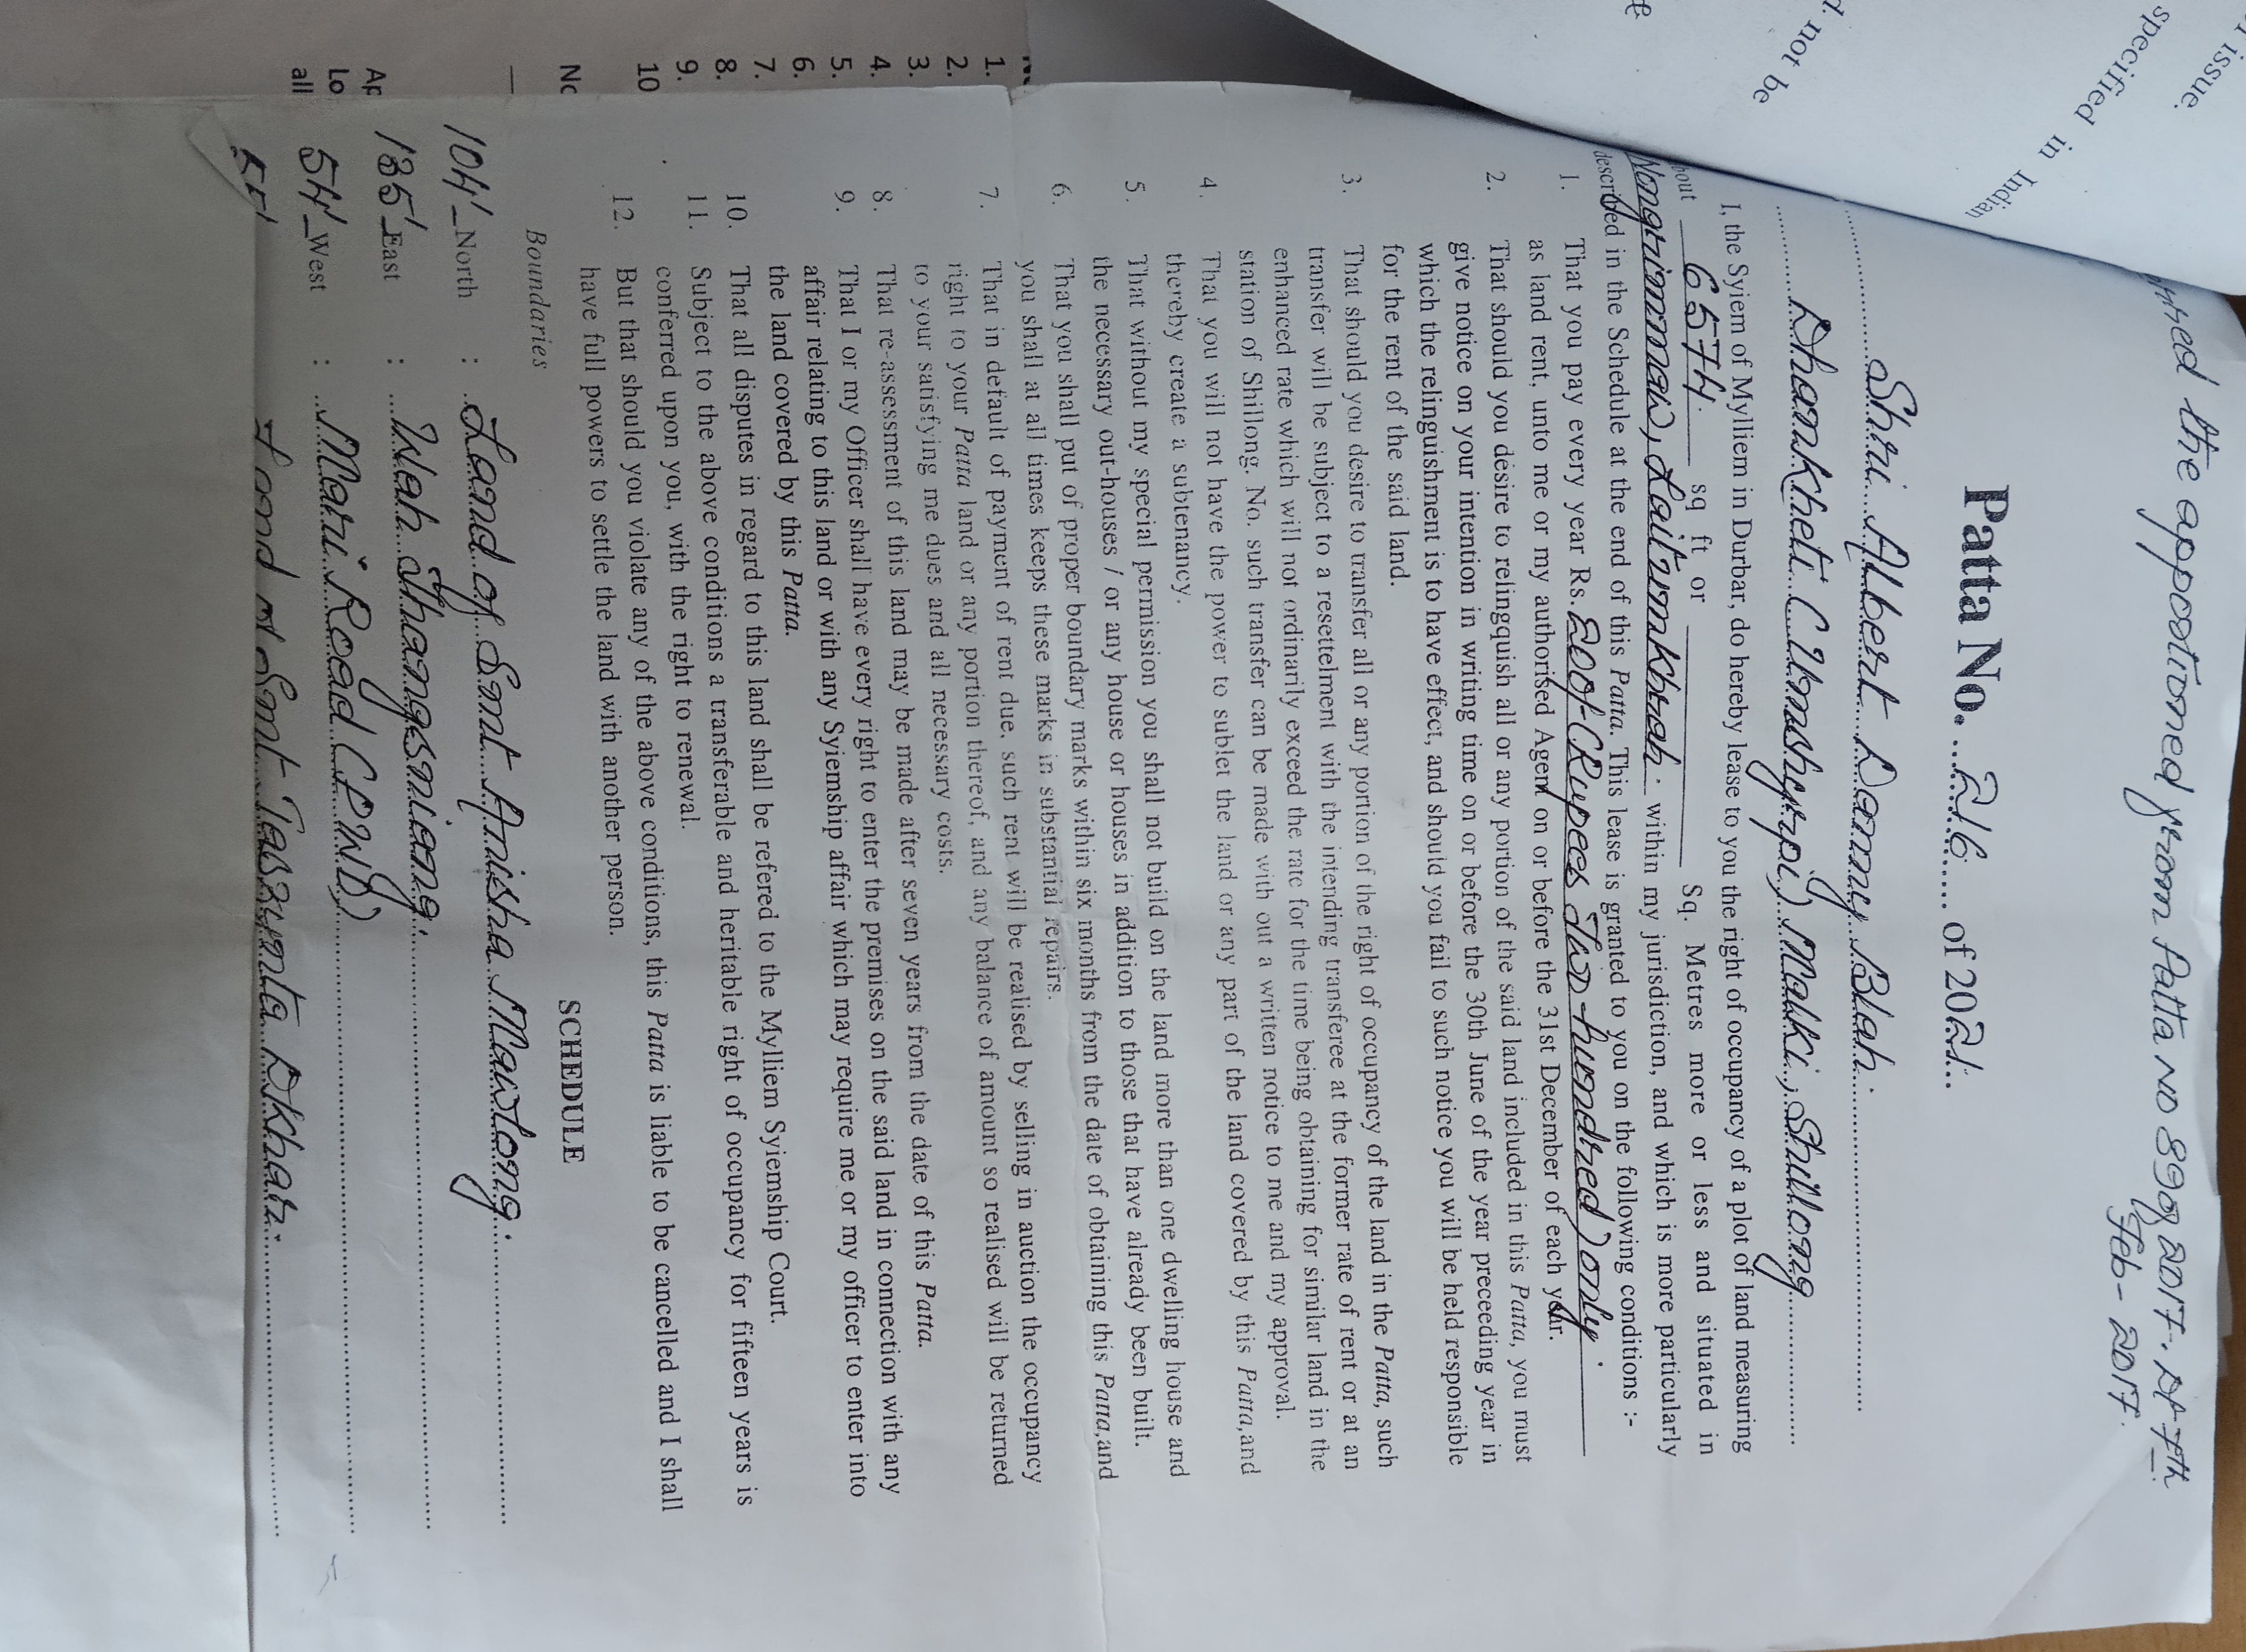 the apportioned from Patta no 89 of 2017. Dt 7th
Feb - 2017.
Patta No. ...216..... of 2021..
Shri Albert Danny Blah.
Dhankheti (Umshyrpi) Malki, Shillong
I, the Syiem of Mylliem in Durbar, do hereby lease to you the right of occupancy of a plot of land measuring
6574. sq ft or ________ Sq. Metres more or less and situated in
Nongrimmaw, Laitumkhrah. within my jurisdiction, and which is more particularly
described in the Schedule at the end of this Patta. This lease is granted to you on the following conditions :-
1. That you pay every year Rs. 200/- (Rupees Two hundred) only.
as land rent, unto me or my authorised Agent on or before the 31st December of each year.
2. That should you desire to relingquish all or any portion of the said land included in this Patta, you must
give notice on your intention in writing time on or before the 30th June of the year preceeding year in
which the relinguishment is to have effect, and should you fail to such notice you will be held responsible
for the rent of the said land.
3. That should you desire to transfer all or any portion of the right of occupancy of the land in the Patta, such
transfer will be subject to a resetelment with the intending transferee at the former rate of rent or at an
enhanced rate which will not ordinarily exceed the rate for the time being obtaining for similar land in the
station of Shillong. No. such transfer can be made with out a written notice to me and my approval.
4. That you will not have the power to sublet the land or any part of the land covered by this Patta, and
thereby create a subtenancy.
5. That without my special permission you shall not build on the land more than one dwelling house and
the necessary out-houses / or any house or houses in addition to those that have already been built.
6. That you shall put of proper boundary marks within six months from the date of obtaining this Patta, and
you shall at all times keeps these marks in substantial repairs.
7. That in default of payment of rent due, such rent will be realised by selling in auction the occupancy
right to your Patta land or any portion thereof, and any balance of amount so realised will be returned
to your satisfying me dues and all necessary costs.
8. That re-assessment of this land may be made after seven years from the date of this Patta.
9. That I or my Officer shall have every right to enter the premises on the said land in connection with any
affair relating to this land or with any Syiemship affair which may require me or my officer to enter into
the land covered by this Patta.
10. That all disputes in regard to this land shall be refered to the Mylliem Syiemship Court.
11. Subject to the above conditions a transferable and heritable right of occupancy for fifteen years is
conferred upon you, with the right to renewal.
12. But that should you violate any of the above conditions, this Patta is liable to be cancelled and I shall
have full powers to settle the land with another person.
SCHEDULE
Boundaries
104'_ North : Land of Smt Anisha Mawlong.
135'_ East : Wah Thangsniang.
54'_ West : Main Road (PWD)
55' Land of Smt Tasrymta Dkhar.
issue
specified in Indian
not be
1.
2.
3.
4.
5.
6.
7.
8.
9.
10
Lo
all